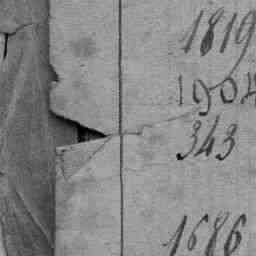 1819
1904
343
1686